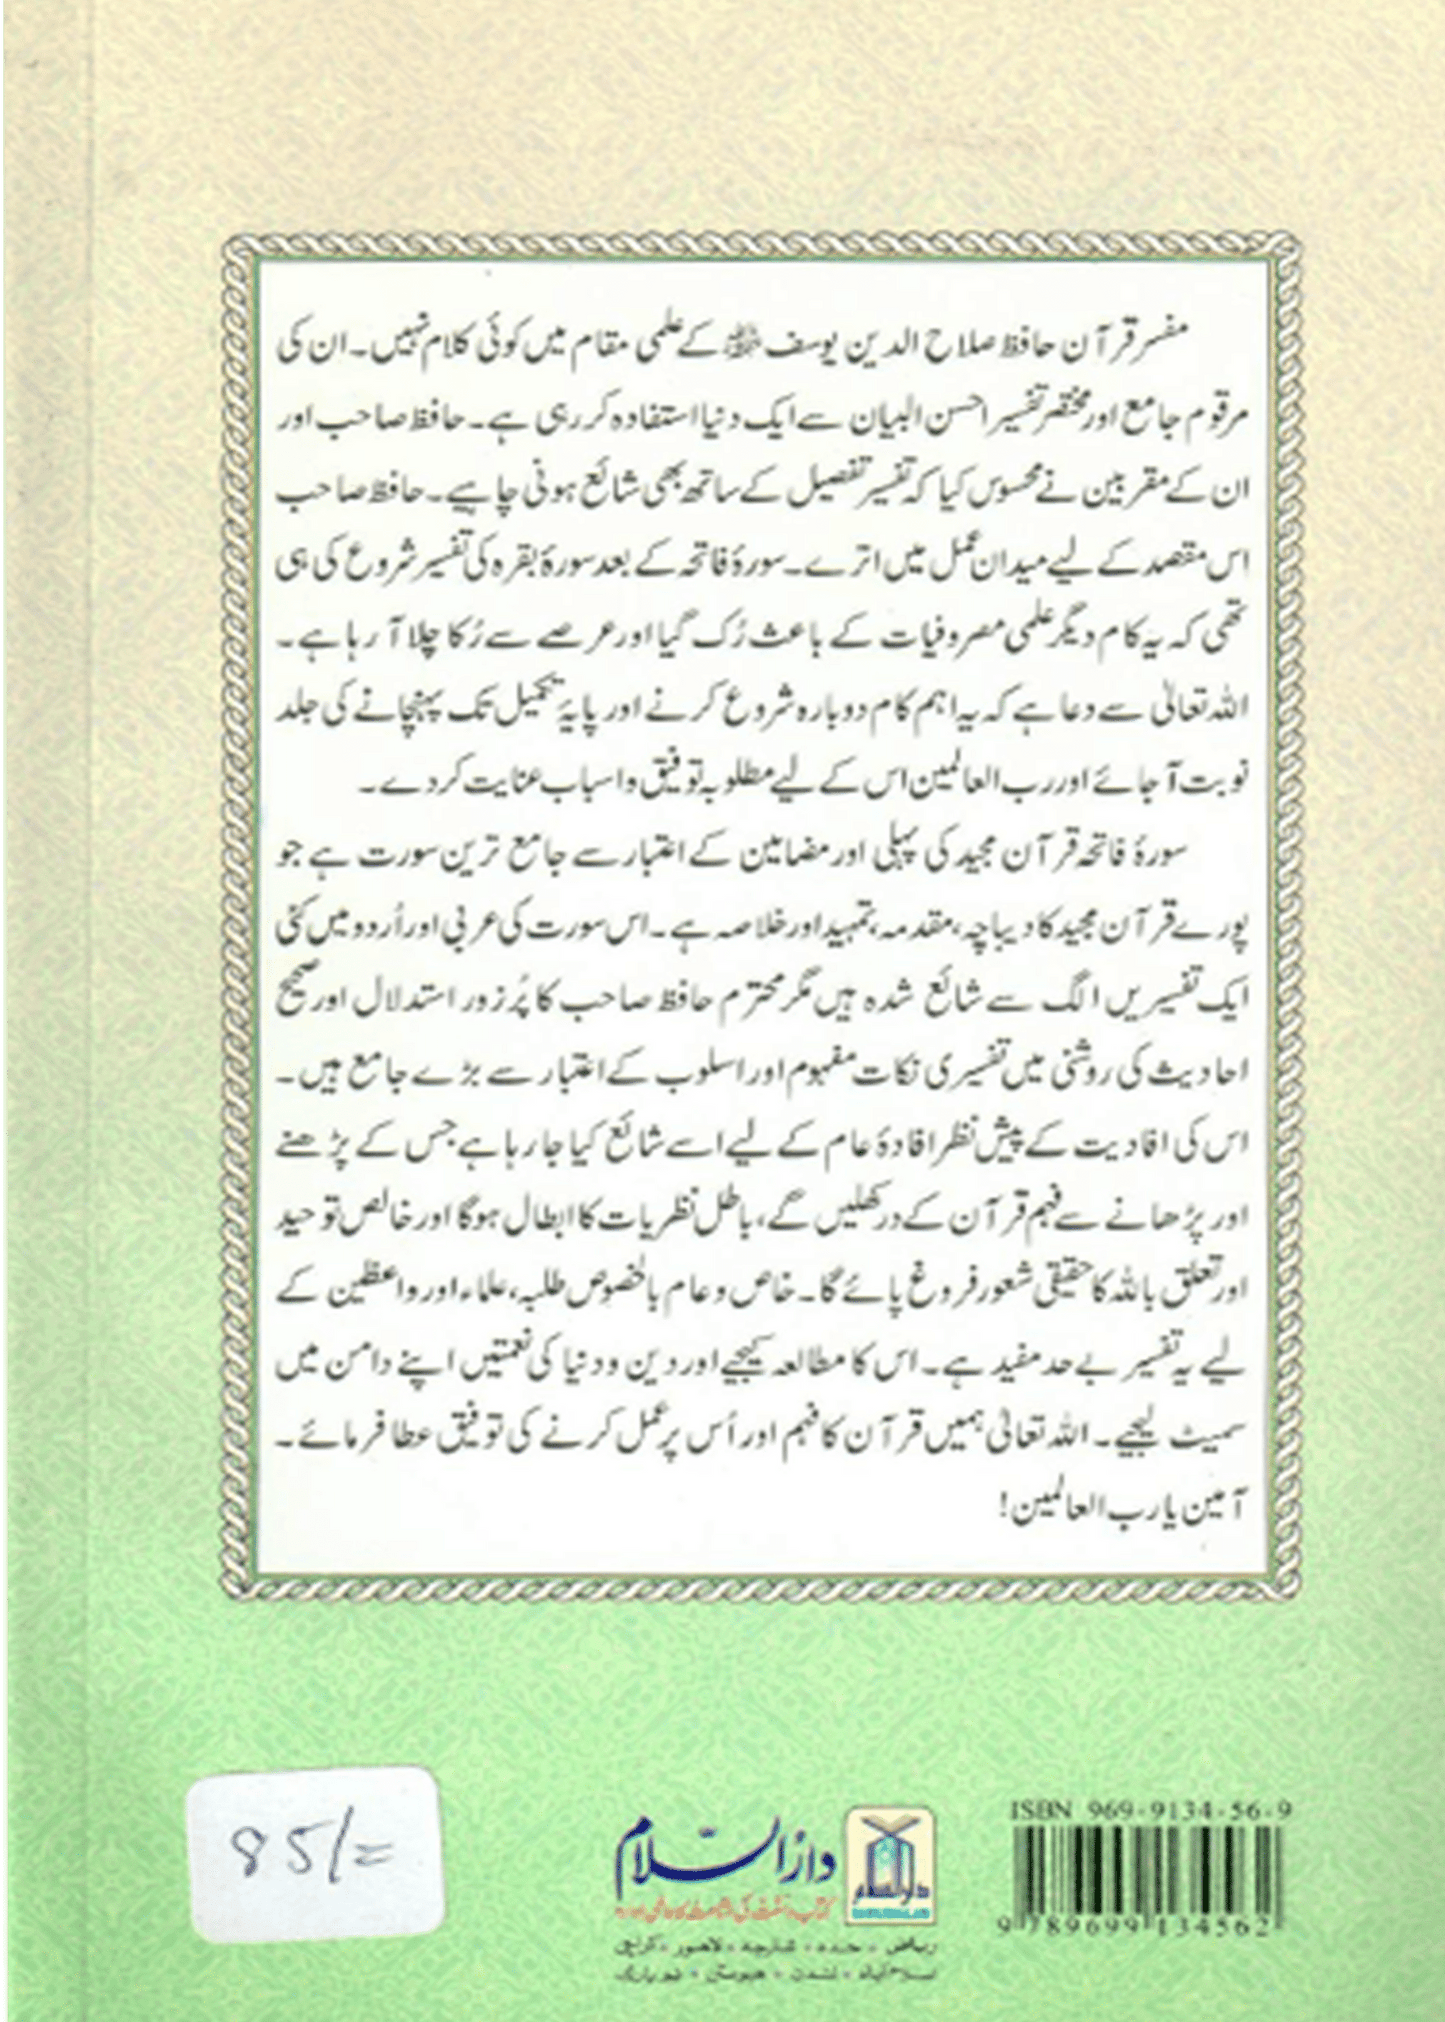 مفسر قرآن حافظ صلاح الدین یوسف ﷾ کے علمی مقام میں کوئی کلام نہیں۔ ان کی
مرقوم جامع اور مختصر تفسیر احسن البیان سے ایک دنیا استفادہ کر رہی ہے۔ حافظ صاحب اور
ان کے مقربین نے محسوس کیا کہ تفسیر تفصیل کے ساتھ بھی شائع ہونی چاہیے۔ حافظ صاحب
اس مقصد کے لیے میدان عمل میں اترے۔ سورۂ فاتحہ کے بعد سورۂ بقرہ کی تفسیر شروع کی ہی
تھی کہ یہ کام دیگر علمی مصروفیات کے باعث رُک گیا اور عرصے سے رُکا چلا آ رہا ہے۔
اللہ تعالیٰ سے دعا ہے کہ یہ اہم کام دوبارہ شروع کرنے اور پایۂ تکمیل تک پہنچانے کی جلد
نوبت آ جائے اور رب العالمین اس کے لیے مطلوبہ توفیق و اسباب عنایت کر دے۔
سورۂ فاتحہ قرآن مجید کی پہلی اور مضامین کے اعتبار سے جامع ترین سورت ہے جو
پورے قرآن مجید کا دیباچہ، مقدمہ، تمہید اور خلاصہ ہے۔ اس سورت کی عربی اور اُردو میں کئی
ایک تفسیریں الگ سے شائع شدہ ہیں مگر محترم حافظ صاحب کا پُرزور استدلال اور صحیح
احادیث کی روشنی میں تفسیری نکات مفہوم اور اسلوب کے اعتبار سے بڑے جامع ہیں۔
اس کی افادیت کے پیش نظر افادۂ عام کے لیے اسے شائع کیا جا رہا ہے جس کے پڑھنے
اور پڑھانے سے فہم قرآن کے در کھلیں گے، باطل نظریات کا ابطال ہوگا اور خالص توحید
اور تعلق باللہ کا حقیقی شعور فروغ پائے گا۔ خاص و عام بالخصوص طلبہ، علماء اور واعظین کے
لیے یہ تفسیر بے حد مفید ہے۔ اس کا مطالعہ کیجیے اور دین و دنیا کی نعمتیں اپنے دامن میں
سمیٹ لیجیے۔ اللہ تعالیٰ ہمیں قرآن کا فہم اور اُس پر عمل کرنے کی توفیق عطا فرمائے۔
آمین یا رب العالمین!
85/=
دارالسلام
کتاب و سنت کی اشاعت کا عالمی ادارہ
ریاض • جدہ • شارجہ • لاہور • کراچی
اسلام آباد • لندن • ہیوسٹن • نیو یارک
دارالسلام
ISBN 969-9134-56-9
9 789699 134562